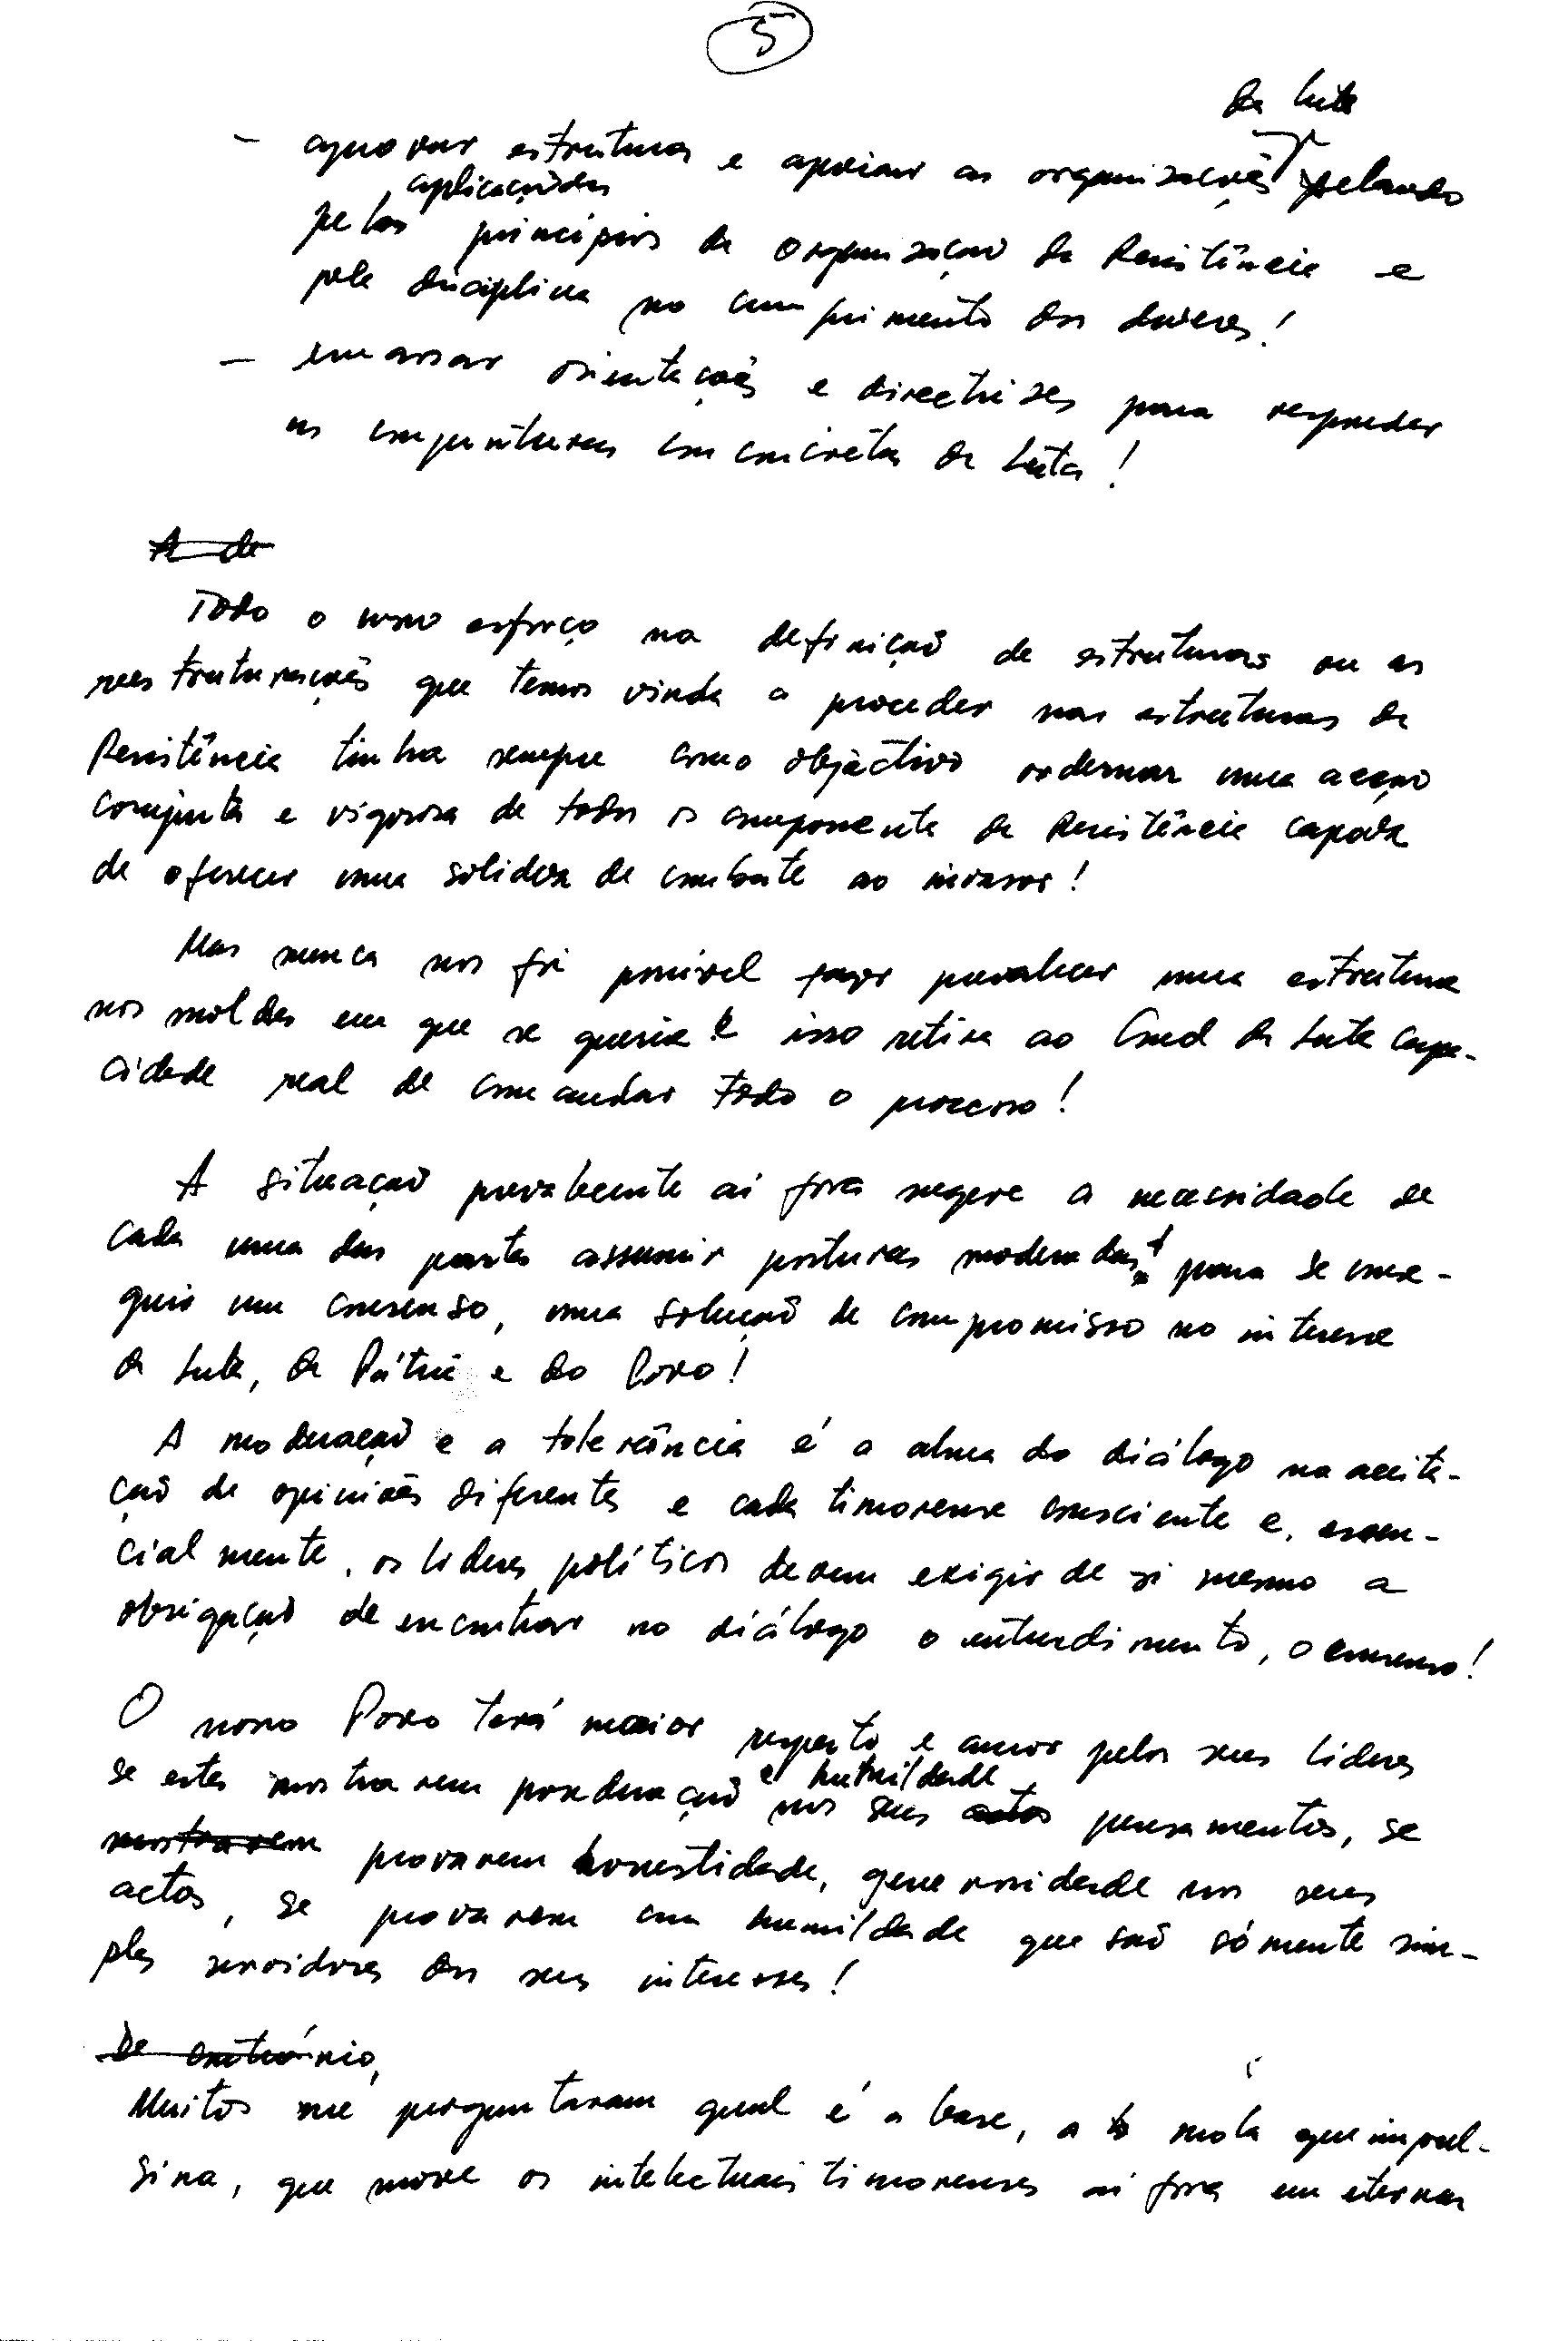 5
da luta
- aprovar estruturas e apoiar as organizações zelando
aplicação dos
pelos princípios da organização da Resistência e
pela disciplina no cumprimento dos deveres!
- emanar orientações e directrizes para responder
as conjunturas concretas da luta!
A de
Todo o nosso esforço na definição de estruturas ou as
reestruturações que temos vindo a proceder nas estruturas da
Resistência tinha sempre como objectivo ordernar uma acção
conjunta e vigorosa de todos os componente da Resistência capaz
de oferecer uma solidez de combate ao invasor!
Mas nunca nos foi possível fazer prevalecer uma estrutura
nos moldes em que se queria e isso retira ao Cmd da Luta capa-
cidade real de comandar todo o processo!
A situação prevalecente aí fora sugere a necessidade de
cada uma das partes assumir posturas moderadas para se conse-
guir um consenso, uma solução de compromisso no interesse
da Luta, da Pátria e do Povo!
A moderação e a tolerância é a alma do diálogo na aceita-
ção de opiniões diferentes e cada timorense consciente e, essen-
cialmente, os líderes políticos devem exigir de si mesmo a
obrigação de encontrar no diálogo o entendimento, o consenso!
O nosso Povo terá maior respeito e amor pelos seus líderes
e humildade
se estes mostrarem ponderação nos seus actos pensamentos, se
mostrarem provarem honestidade, generosidade nos seus
actos, se provarem com humildade que são sómente sim-
ples servidores dos seus interesses!
De contrário,
Muitos me perguntaram qual é a base, a mola que impul-
siona, que move os intelectuais timorenses aí fora em eternas